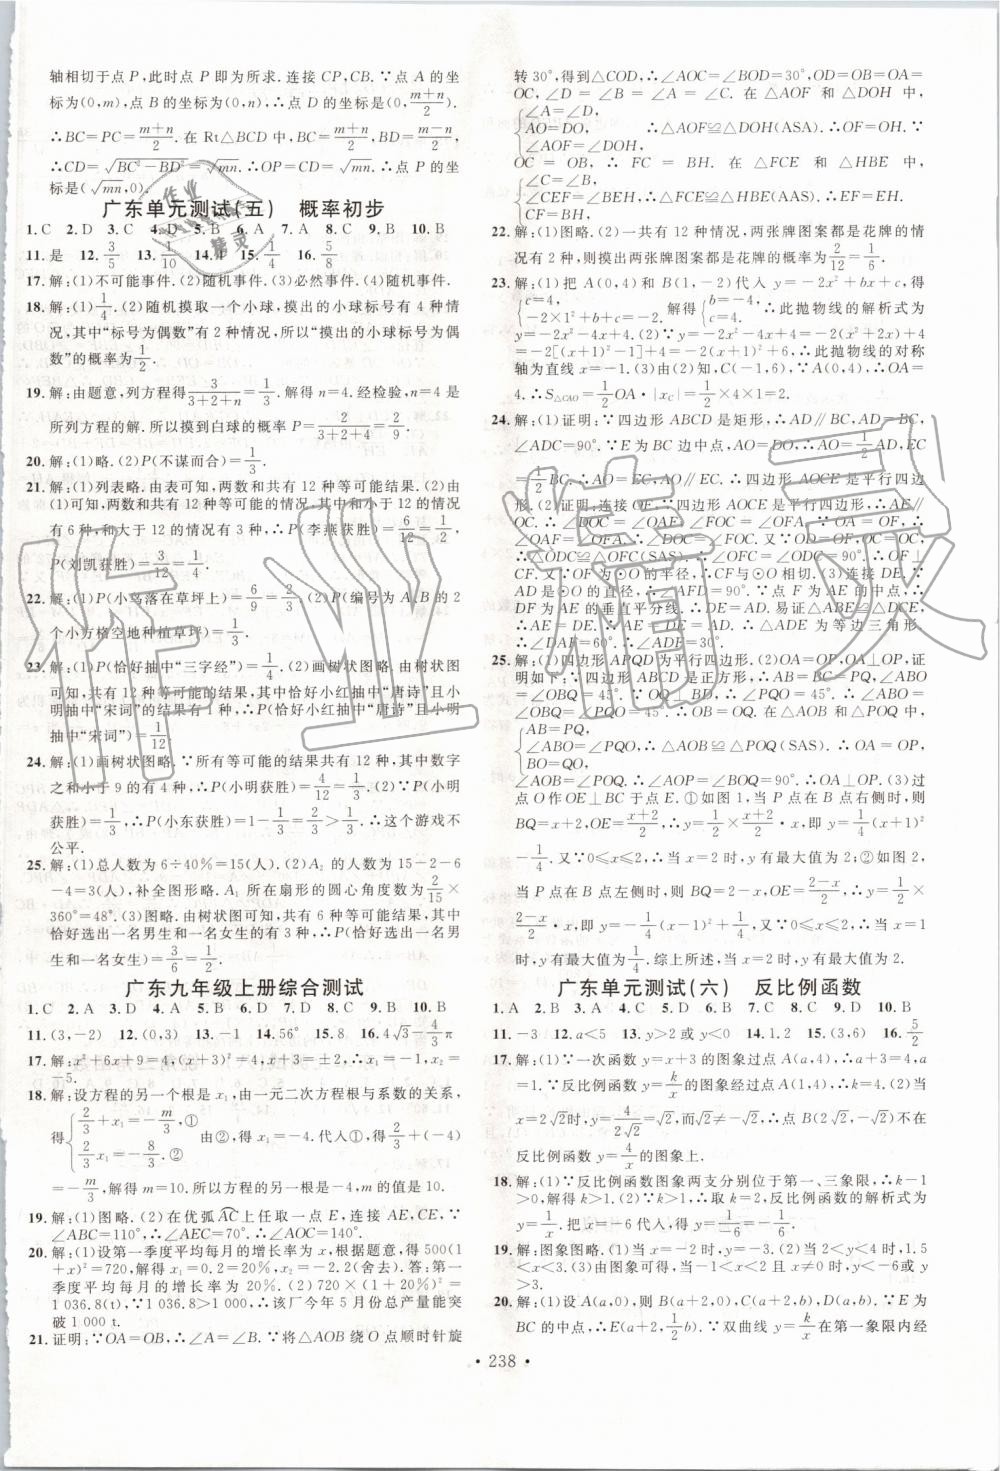 轴相切于点 P,此时点 P 即为所求. 连接 CP,CB. ∵点 A 的坐
标为(0,m),点 B 的坐标为(0,n),∴点 D 的坐标是(0,(m+n)/2).
∴BC=PC=(m+n)/2. 在 Rt△BCD 中,BC=(m+n)/2,BD=(m−n)/2,
∴CD=√(BC²−BD²)=√mn. ∴OP=CD=√mn. ∴点 P 的坐
标是(√mn,0).
广东单元测试(五)　概率初步
1. C 2. D 3. C 4. D 5. B 6. A 7. A 8. C 9. B 10. B
11. 是 12. 3/5 13. 1/10 14. 4 15. 1/4 16. 5/8
17. 解:(1)不可能事件. (2)随机事件. (3)必然事件. (4)随机事件.
18. 解:(1)1/4. (2)随机摸取一个小球,摸出的小球标号有 4 种情
况,其中“标号为偶数”有 2 种情况,所以“摸出的小球标号为偶
数”的概率为1/2.
19. 解:由题意,列方程得3/(3+2+n)=1/3. 解得 n=4. 经检验,n=4 是
所列方程的解. 所以摸到白球的概率 P=2/(3+2+4)=2/9.
20. 解:(1)略. (2)P(不谋而合)=3/9=1/3.
21. 解:(1)列表略. 由表可知,两数和共有 12 种等可能的结果. (2)
由(1)可知,两数和共有 12 种等可能的情况,其中和小于 12 的情况
有 6 种,和大于 12 的情况有 3 种,∴P(李燕获胜)=6/12=1/2,
P(刘凯获胜)=3/12=1/4.
22. 解:(1)P(小鸟落在草坪上)=6/9=2/3. (2)P(编号为 A,B 的 2
个小方格空地种植草坪)=1/3.
23. 解:(1)P(恰好抽中“三字经”)=1/4. (2)画树状图略. 由树状图
可知,共有 12 种等可能的结果,其中恰好小红抽中“唐诗”且小
明抽中“宋词”的结果有 1 种,∴P(恰好小红抽中“唐诗”且小明
抽中“宋词”)=1/12.
24. 解:(1)画树状图略. ∵所有等可能的结果共有 12 种,其中数字
之和小于 9 的有 4 种,∴P(小明获胜)=4/12=1/3. (2)∵P(小明
获胜)=1/3,∴P(小东获胜)=1−1/3=2/3>1/3. ∴这个游戏不
公平.
25. 解:(1)总人数为 6÷40%=15(人). (2)A₂ 的人数为 15−2−6
−4=3(人),补全图形略. A₁ 所在扇形的圆心角度数为2/15×
360°=48°. (3)图略. 由树状图可知,共有 6 种等可能的结果,其中
恰好选出一名男生和一名女生的有 3 种,∴P(恰好选出一名男
生和一名女生)=3/6=1/2.
广东九年级上册综合测试
1. C 2. A 3. D 4. C 5. B 6. D 7. D 8. C 9. B 10. B
11. (3,−2) 12. (0,3) 13. −1 14. 56° 15. 8 16. 4√3−4/3π
17. 解:x²+6x+9=4,(x+3)²=4,x+3=±2,∴x₁=−1,x₂=
−5.
18. 解:设方程的另一个根是 x₁,由一元二次方程根与系数的关系,
得{2/3+x₁=−m/3,① 2/3x₁=−8/3. ② 由②,得 x₁=−4. 代人①,得2/3+(−4)
=−m/3,解得 m=10. 所以方程的另一根为−4,m 的值是 10.
19. 解:(1)图略. (2)在优弧AC上任取一点 E,连接 AE,CE. ∵
∠ABC=110°,∴∠AEC=70°. ∴∠AOC=140°.
20. 解:(1)设第一季度平均每月的增长率为 x,根据题意,得 500(1
+x)²=720,解得 x₁=0.2=20%,x₂=−2.2(舍去). 答:第一
季度平均每月的增长率为 20%. (2)720×(1+20%)²=
1 036.8(t). ∵1 036.8>1 000,∴该厂今年 5 月份总产量能突
破 1 000 t.
21. 证明:∵OA=OB,∴∠A=∠B. ∵将△AOB 绕 O 点顺时针旋
转 30°,得到△COD,∴∠AOC=∠BOD=30°,OD=OB=OA=
OC,∠D=∠B=∠A=∠C. 在△AOF 和△DOH 中,
{∠A=∠D, AO=DO, ∠AOF=∠DOH, ∴△AOF≌△DOH(ASA). ∴OF=OH. ∵
OC=OB,∴FC=BH. 在△FCE 和△HBE 中,
{∠C=∠B, ∠CEF=∠BEH, FC=HB, ∴△FCE≌△HBE(AAS). ∴EF=EH.
22. 解:(1)图略. (2)一共有 12 种情况,两张牌图案都是花牌的情
况有 2 种,则摸出两张牌图案都是花牌的概率为2/12=1/6.
23. 解:(1)把 A(0,4)和 B(1,−2)代人 y=−2x²+bx+c,得
{c=4, −2×1²+b+c=−2. 解得{b=−4, c=4. ∴此抛物线的解析式为
y=−2x²−4x+4. (2)∵y=−2x²−4x+4=−2(x²+2x)+4
=−2[(x+1)²−1]+4=−2(x+1)²+6,∴此抛物线的对称
轴为直线 x=−1. (3)由(2)知,C(−1,6),∵A(0,4),∴OA=
4. ∴S△CAO=1/2OA·|xC|=1/2×4×1=2.
24. 解:(1)证明:∵四边形 ABCD 是矩形,∴AD∥BC,AD=BC,
∠ADC=90°. ∵E 为 BC 边中点,AO=DO,∴AO=1/2AD,EC
=1/2BC. ∴AO=EC,AO∥EC. ∴四边形 AOCE 是平行四边形.
(2)证明:连接 OF. ∵四边形 AOCE 是平行四边形,∴AE∥
OC. ∴∠DOC=∠OAF,∠FOC=∠OFA. ∵OA=OF,∴
∠OAF=∠OFA. ∴∠DOC=∠FOC. 又∵OD=OF,OC=OC,
∴△ODC≌△OFC(SAS). ∴∠OFC=∠ODC=90°. ∴OF⊥
CF. 又∵OF 为⊙O 的半径,∴CF与⊙O 相切. (3)连接 DE. ∵
AD 是⊙O 的直径,∴∠AFD=90°. ∵点 F 为 AE 的中点,∴
DF 为 AE 的垂直平分线. ∴DE=AD. 易证△ABE≌△DCE,
∴AE=DE. ∴AE=DE=AD. ∴△ADE 为等边三角形.
∴∠DAF=60°. ∴∠ADF=30°.
25. 解:(1)四边形 APQD 为平行四边形. (2)OA=OP,OA⊥OP,证
明如下:∵四边形 ABCD 是正方形,∴AB=BC=PQ,∠ABO=
∠OBQ=45°. ∵OQ⊥BD,∴∠PQO=45°. ∴∠ABO=
∠OBQ=∠PQO=45°. ∴OB=OQ. 在△AOB 和△POQ 中,
{AB=PQ, ∠ABO=∠PQO, BO=QO, ∴△AOB≌△POQ(SAS). ∴OA=OP,
∠AOB=∠POQ. ∴∠AOP=∠BOQ=90°. ∴OA⊥OP. (3)过
点 O 作 OE⊥BC 于点 E. ①如图 1,当 P 点在 B 点右侧时,则
BQ=x+2,OE=(x+2)/2,∴y=1/2×(x+2)/2·x,即 y=1/4(x+1)²
−1/4. 又∵0≤x≤2,∴当 x=2 时,y 有最大值为 2;②如图 2,
当 P 点在 B 点左侧时,则 BQ=2−x,OE=(2−x)/2,∴y=1/2×
(2−x)/2·x,即 y=−1/4(x−1)²+1/4. 又∵0≤x≤2,∴当 x=1
时,y 有最大值为1/4. 综上所述,∴当 x=2 时,y 有最大值为 2.
广东单元测试(六)　反比例函数
1. A 2. C 3. B 4. B 5. D 6. A 7. D 8. A 9. D 10. B
11. −3 12. a<5 13. y>2或y<0 14. 1.2 15. (3,6) 16. 5/2
17. 解:(1)∵一次函数 y=x+3 的图象过点 A(a,4),∴a+3=4,a
=1. ∵反比例函数 y=k/x的图象经过点 A(1,4),∴k=4. (2)当
x=2√2时,y=4/(2√2)=√2,而√2≠−√2,∴点 B(2√2,−√2)不在
反比例函数 y=4/x的图象上.
18. 解:(1)∵反比例函数图象两支分别位于第一、三象限,∴k−1
>0,解得 k>1. (2)∵取 k=2,∴反比例函数的解析式为
y=1/x. 把 x=−6 代人,得 y=1/x=1/−6=−1/6.
19. 解:(1)图象图略. (2)①y=−6;②y=−3. (3)当 2<y<4 时,1.5
<x<3. (3)由图象可得,当−1<x<2 且 x≠0 时,y<−6或y
>3.
20. 解:(1)设 A(a,0),则 B(a,4),C(a+4,4),D(a+4,0). ∵E 为
BC 的中点,∴E(a+2,4). ∵双曲线 y=k/x在第一象限内经
· 238 ·
作业精灵